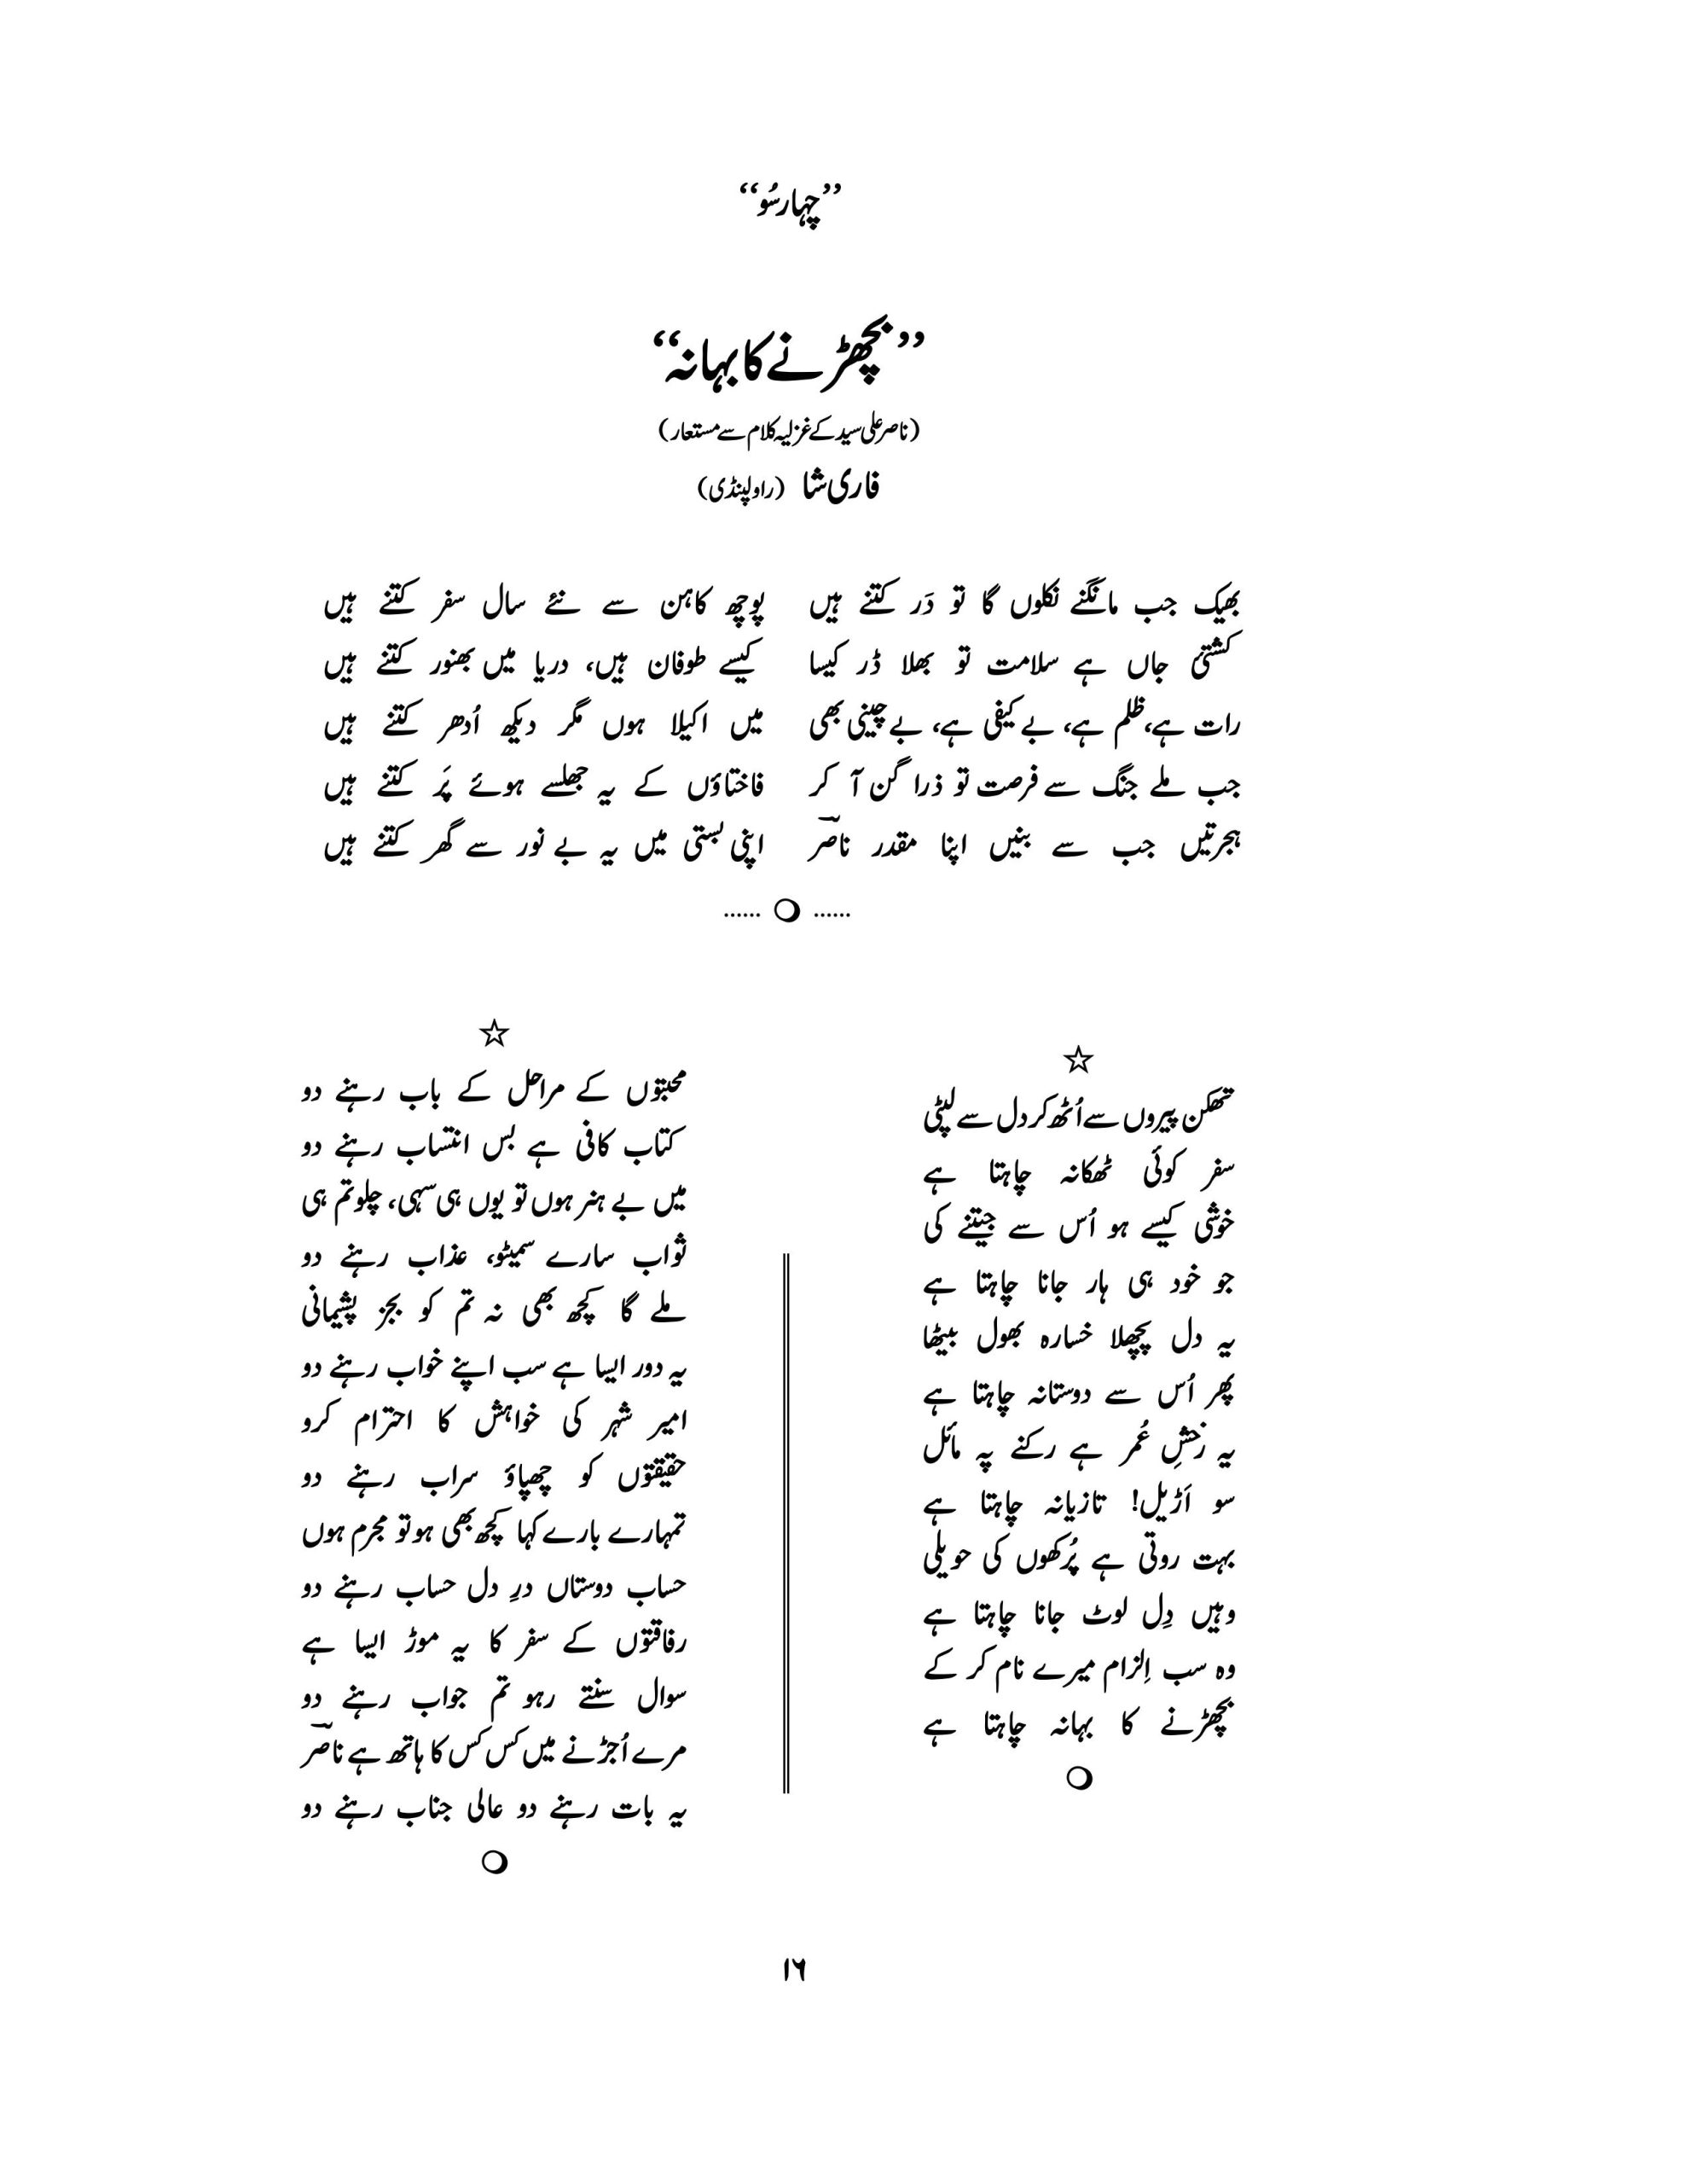 ”چہارسُو“
”بچھڑنے کا بہانہ“
(ناصر علی سید کے غزلیہ کلام سے مستعار)
فاری شا (راولپنڈی)
بھیک جب مانگنے نکلوں گا تو دَر کتنے ہیں پوچھ کاہن سے نئے سال سفر کتنے ہیں
کشتیٔ جاں ہے سلامت تو بھلا ڈر کیسا کیسے طوفان ہیں، دریا میں بھنور کتنے ہیں
رات ہے، ظلم ہے، بے کیفی ہے، بے چینی بھی میں اکیلا ہوں مگر دیکھ اُدھر کتنے ہیں
جب ملے جنگ سے فرصت تو ذرا گن آ کر فاختاؤں کے یہ جھلسے ہوئے پَر کتنے ہیں
ہجرتیں جب سے بنیں اپنا مقدر ناصرؔ اپنی بستی میں یہ بے نور سے گھر کتنے ہیں
...... ○ ......
☆
تھکن پیروں سے اُٹھ کر دل سے لپٹی
سفر کوئی ٹھکانہ چاہتا ہے
خوشی کیسے ہو اُس سے جیتنے کی
جو خود ہی ہار جانا چاہتا ہے
یہ دل پچھلا خسارہ بھول بیٹھا
پھر اُس سے دوستانہ چاہتا ہے
یہ رخشِ عُمر ہے رکنے پہ مائل
سو اَڑیل! تازیانہ چاہتا ہے
بہت روتی ہے پُرکھوں کی حویلی
وہیں دِل لوٹ جانا چاہتا ہے
وہ سب اِلزام میرے نام کر کے
بچھڑنے کا بہانہ چاہتا ہے
○
☆
محبتوں کے مراحل کے باب رہنے دو
کتاب کافی ہے بس انتساب رہنے دو
میں بے ہنر ہوں تو یوں ہی سہی، چلو تم ہی
ثواب سارے سمیٹو، عذاب رہنے دو
ملے گا کچھ بھی نہ تم کو بجز پشیمانی
یہ دور ایسا ہے سب اپنے خواب رہنے دو
امیر شہر کی خواہش کا احترام کرو
حقیقتوں کو چھپاؤ سراب رہنے دو
تمہارے بارے کہا کچھ بھی ہو تو مجرم ہوں
حساب دوستاں درِ دل حساب رہنے دو
رفاقتوں کے سفر کا یہ موڑ ایسا ہے
سوال سنتے رہو تم جواب رہنے دو
مرے اُجڑنے میں کس کس کا ہاتھ ہے ناصرؔ
یہ بات رہنے دو عالی جناب رہنے دو
○
۱۶